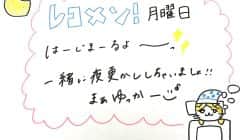 レコメン! 月曜日
はーじまーるよ〜っ
一緒に夜更かししちゃいましょ!!
まぁゆっかー